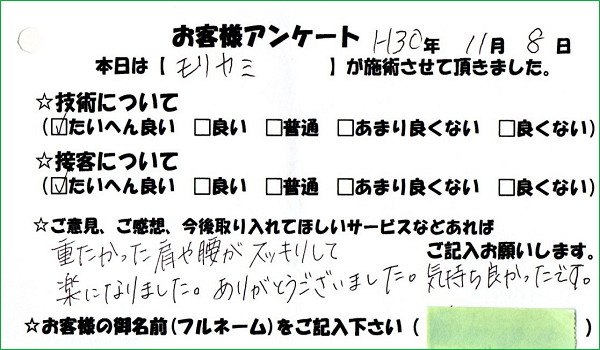 お客様アンケート H30年 11月 8日
本日は【 モリカミ 】が施術させて頂きました。
☆技術について
(☑たいへん良い □良い □普通 □あまり良くない □良くない)
☆接客について
(☑たいへん良い □良い □普通 □あまり良くない □良くない)
☆ご意見、ご感想、今後取り入れてほしいサービスなどあれば
ご記入お願いします。
重たかった肩や腰がスッキリして
楽になりました。ありがとうございました。気持ち良かったです。
☆お客様の御名前(フルネーム)をご記入下さい( )